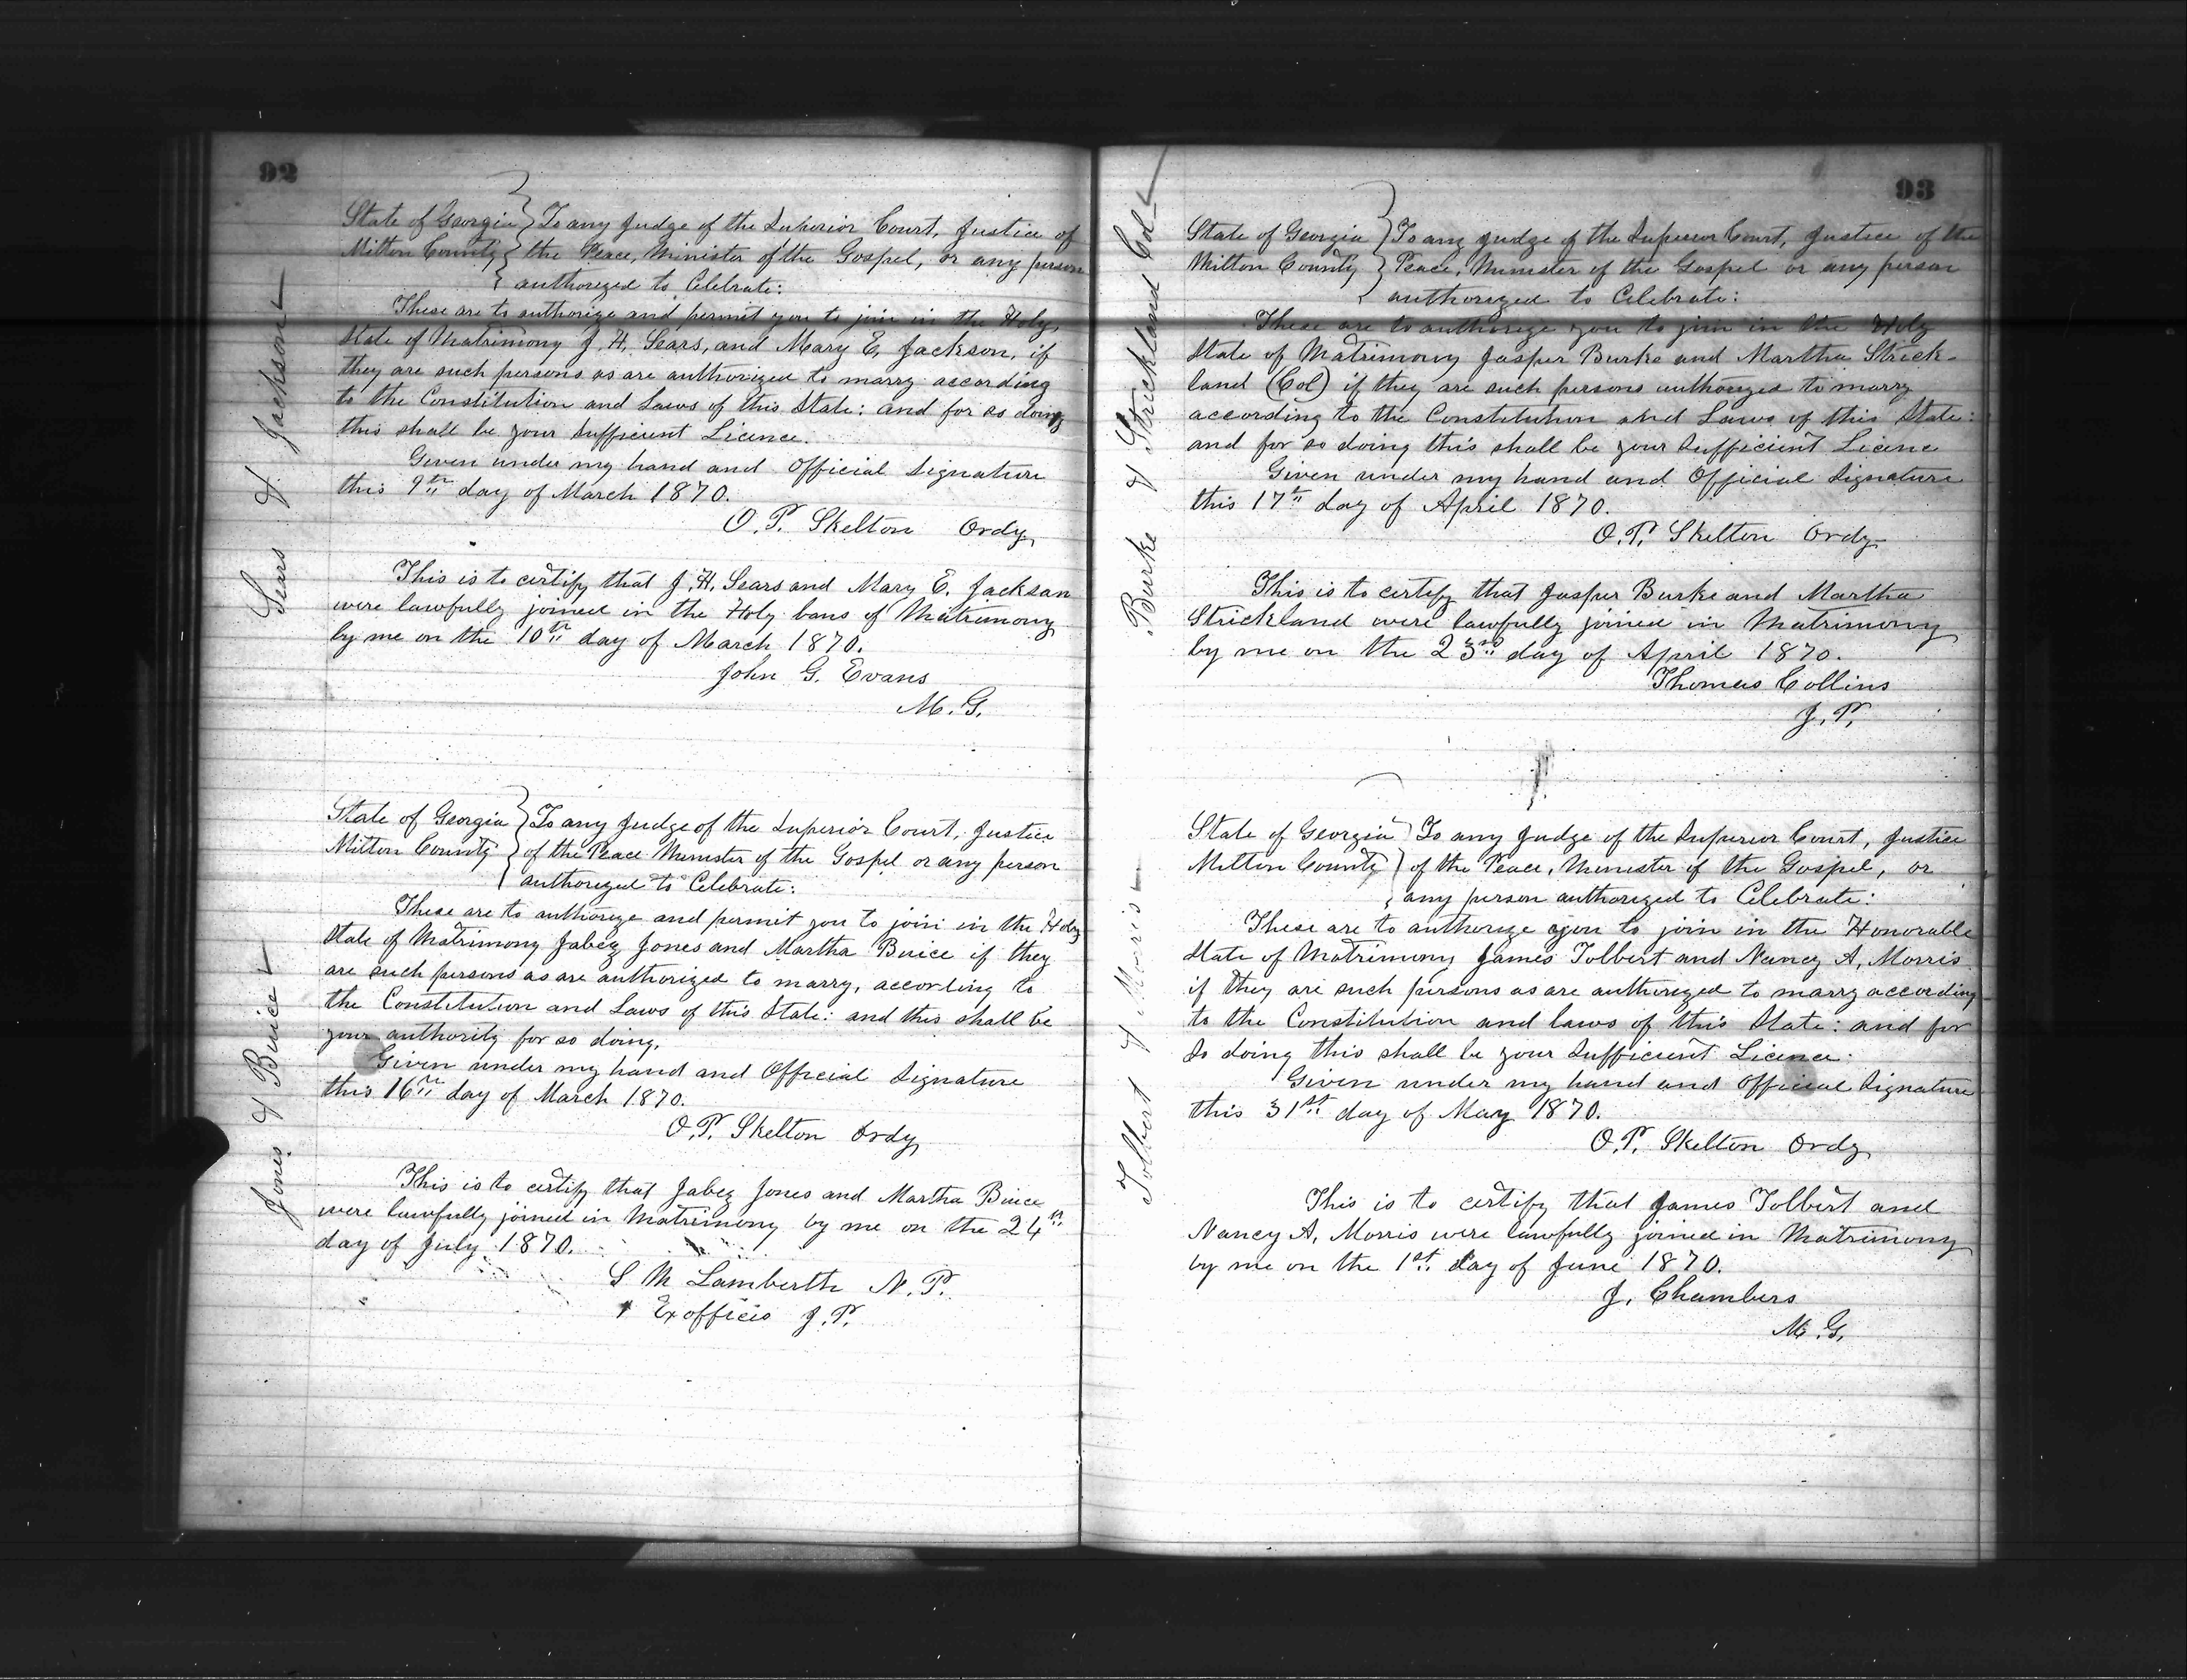 92
Sears & Jackson
State of Georgia } To any Judge of the Superior Court, Justice of
Milton County } the Peace, Minister of the Gospel, or any person
authorized to Celebrate:
These are to authorize and permit you to join in the Holy
State of Matrimony J. H. Sears, and Mary E. Jackson, if
they are such persons as are authorized to marry according
to the Constitution and Laws of this State: and for so doing
this shall be your Sufficient Licence.
Given under my hand and Official Signature
this 9th day of March 1870.
O. P. Skelton Ordy
This is to certify that J. H. Sears and Mary E. Jackson
were lawfully joined in the Holy bans of Matrimony
by me on the 10th day of March 1870.
John G. Evans
M. G.
Jones & Buice
State of Georgia } To any Judge of the Superior Court, Justice
Milton County } of the Peace Minister of the Gospel or any person
authorized to Celebrate:
These are to authorize and permit you to join in the Holy
State of Matrimony Jabez Jones and Martha Buice if they
are such persons as are authorized to marry, according to
the Constitution and Laws of this State: and this shall be
your authority for so doing.
Given under my hand and Official Signature
this 16th day of March 1870.
O. P. Skelton Ordy
This is to certify that Jabez Jones and Martha Buice
were lawfully joined in Matrimony by me on the 24th
day of July 1870.
S M Lamberth N. P.
& Exofficio J. P.
93
Burke & Strickland Col
State of Georgia } To any Judge of the Superior Court, Justice of the
Milton County } Peace, Minister of the Gospel or any person
authorized to Celebrate:
These are to authorize you to join in the Holy
State of Matrimony Jasper Burke and Martha Strick-
land (Col) if they are such persons authorized to marry
according to the Constitution and Laws of this State:
and for so doing this shall be your Sufficient Licene
Given under my hand and Official Signature
this 17th day of April 1870.
O. P. Skelton Ordy
This is to certify that Jasper Burke and Martha
Strickland were lawfully joined in Matrimony
by me on the 23rd day of April 1870.
Thomas Collins
J. P.
Tolbert & Morris
State of Georgia } To any Judge of the Superior Court, Justice
Milton County } of the Peace, Minister of the Gospel, or
any person authorized to Celebrate:
These are to authorize you to join in the Honorable
State of Matrimony James Tolbert and Nancy A. Morris
if they are such persons as are authorized to marry according
to the Constitution and laws of this State: and for
So doing this shall be your Sufficient Licence.
Given under my hand and official Signature
this 31st day of May 1870.
O. P. Skelton Ordy
This is to certify that James Tolbert and
Nancy A. Morris were lawfully joined in Matrimony
by me on the 1st day of June 1870.
J. Chambers
M. G.